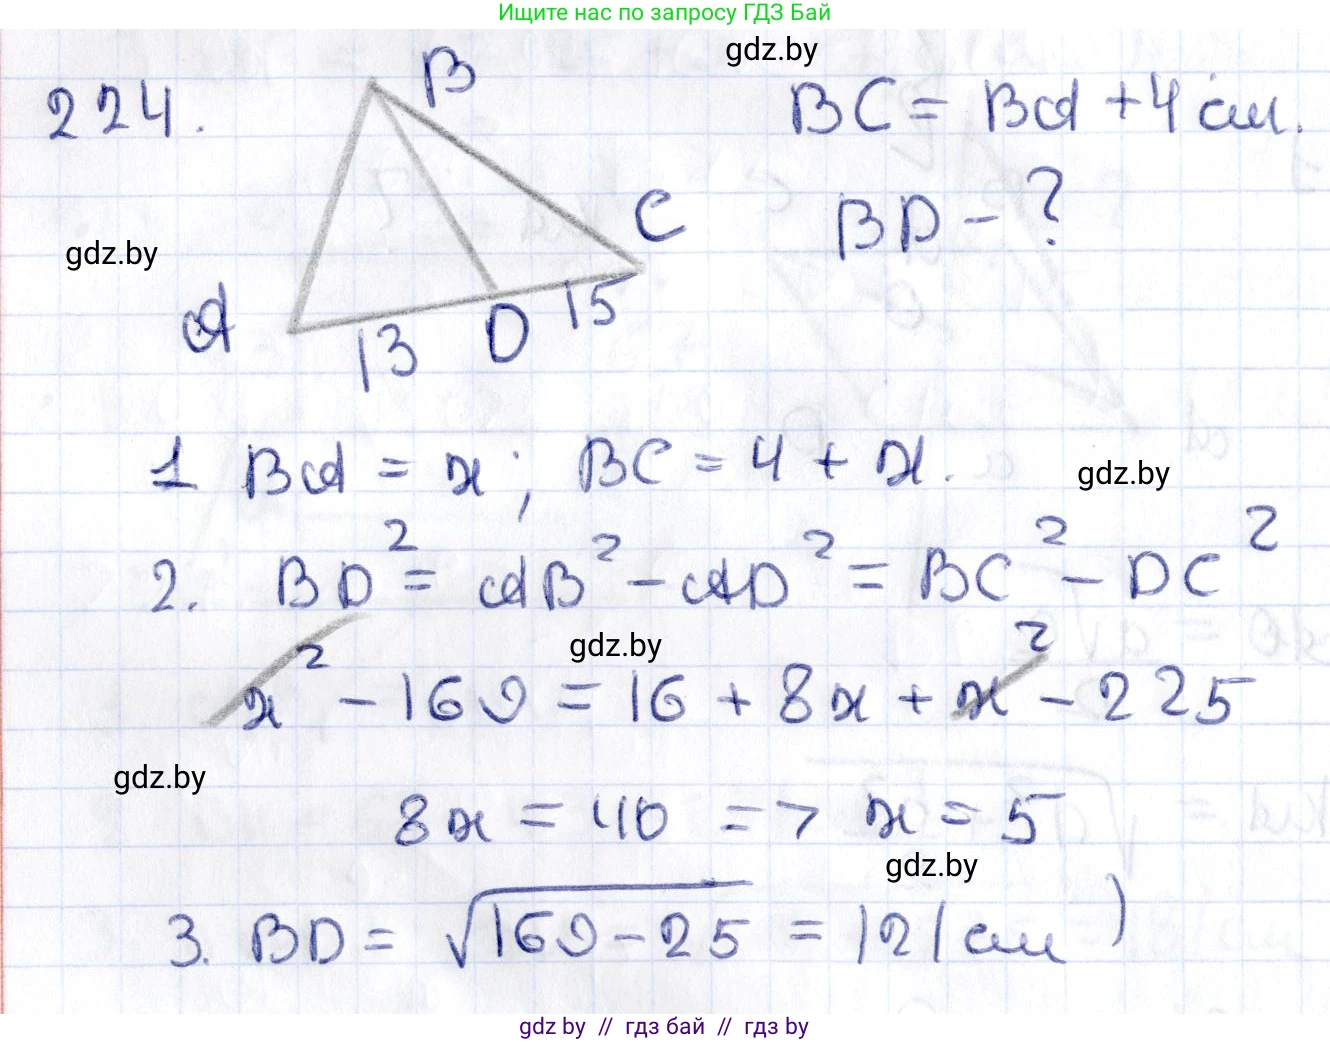 Ищите нас по запросу ГДЗ Бай
gdz.by
224.
B
BC = BA + 4 см.
C
BD - ?
gdz.by
A
13
D
15
1 BA = x; BC = 4 + x.
gdz.by
2. BD² = AB² - AD² = BC² - DC²
gdz.by
x² - 169 = 16 + 8x + x² - 225
gdz.by
8x = 40 => x = 5
gdz.by
3. BD = √169 - 25 = 12 (см)
gdz by // гдз бай // гдз by